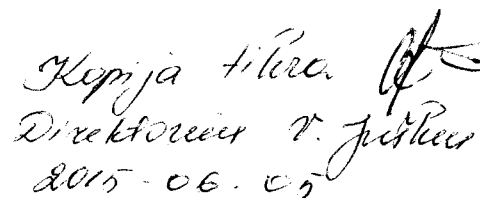 Kopija tikra
Direktorius V. Juškus
2015-06.05